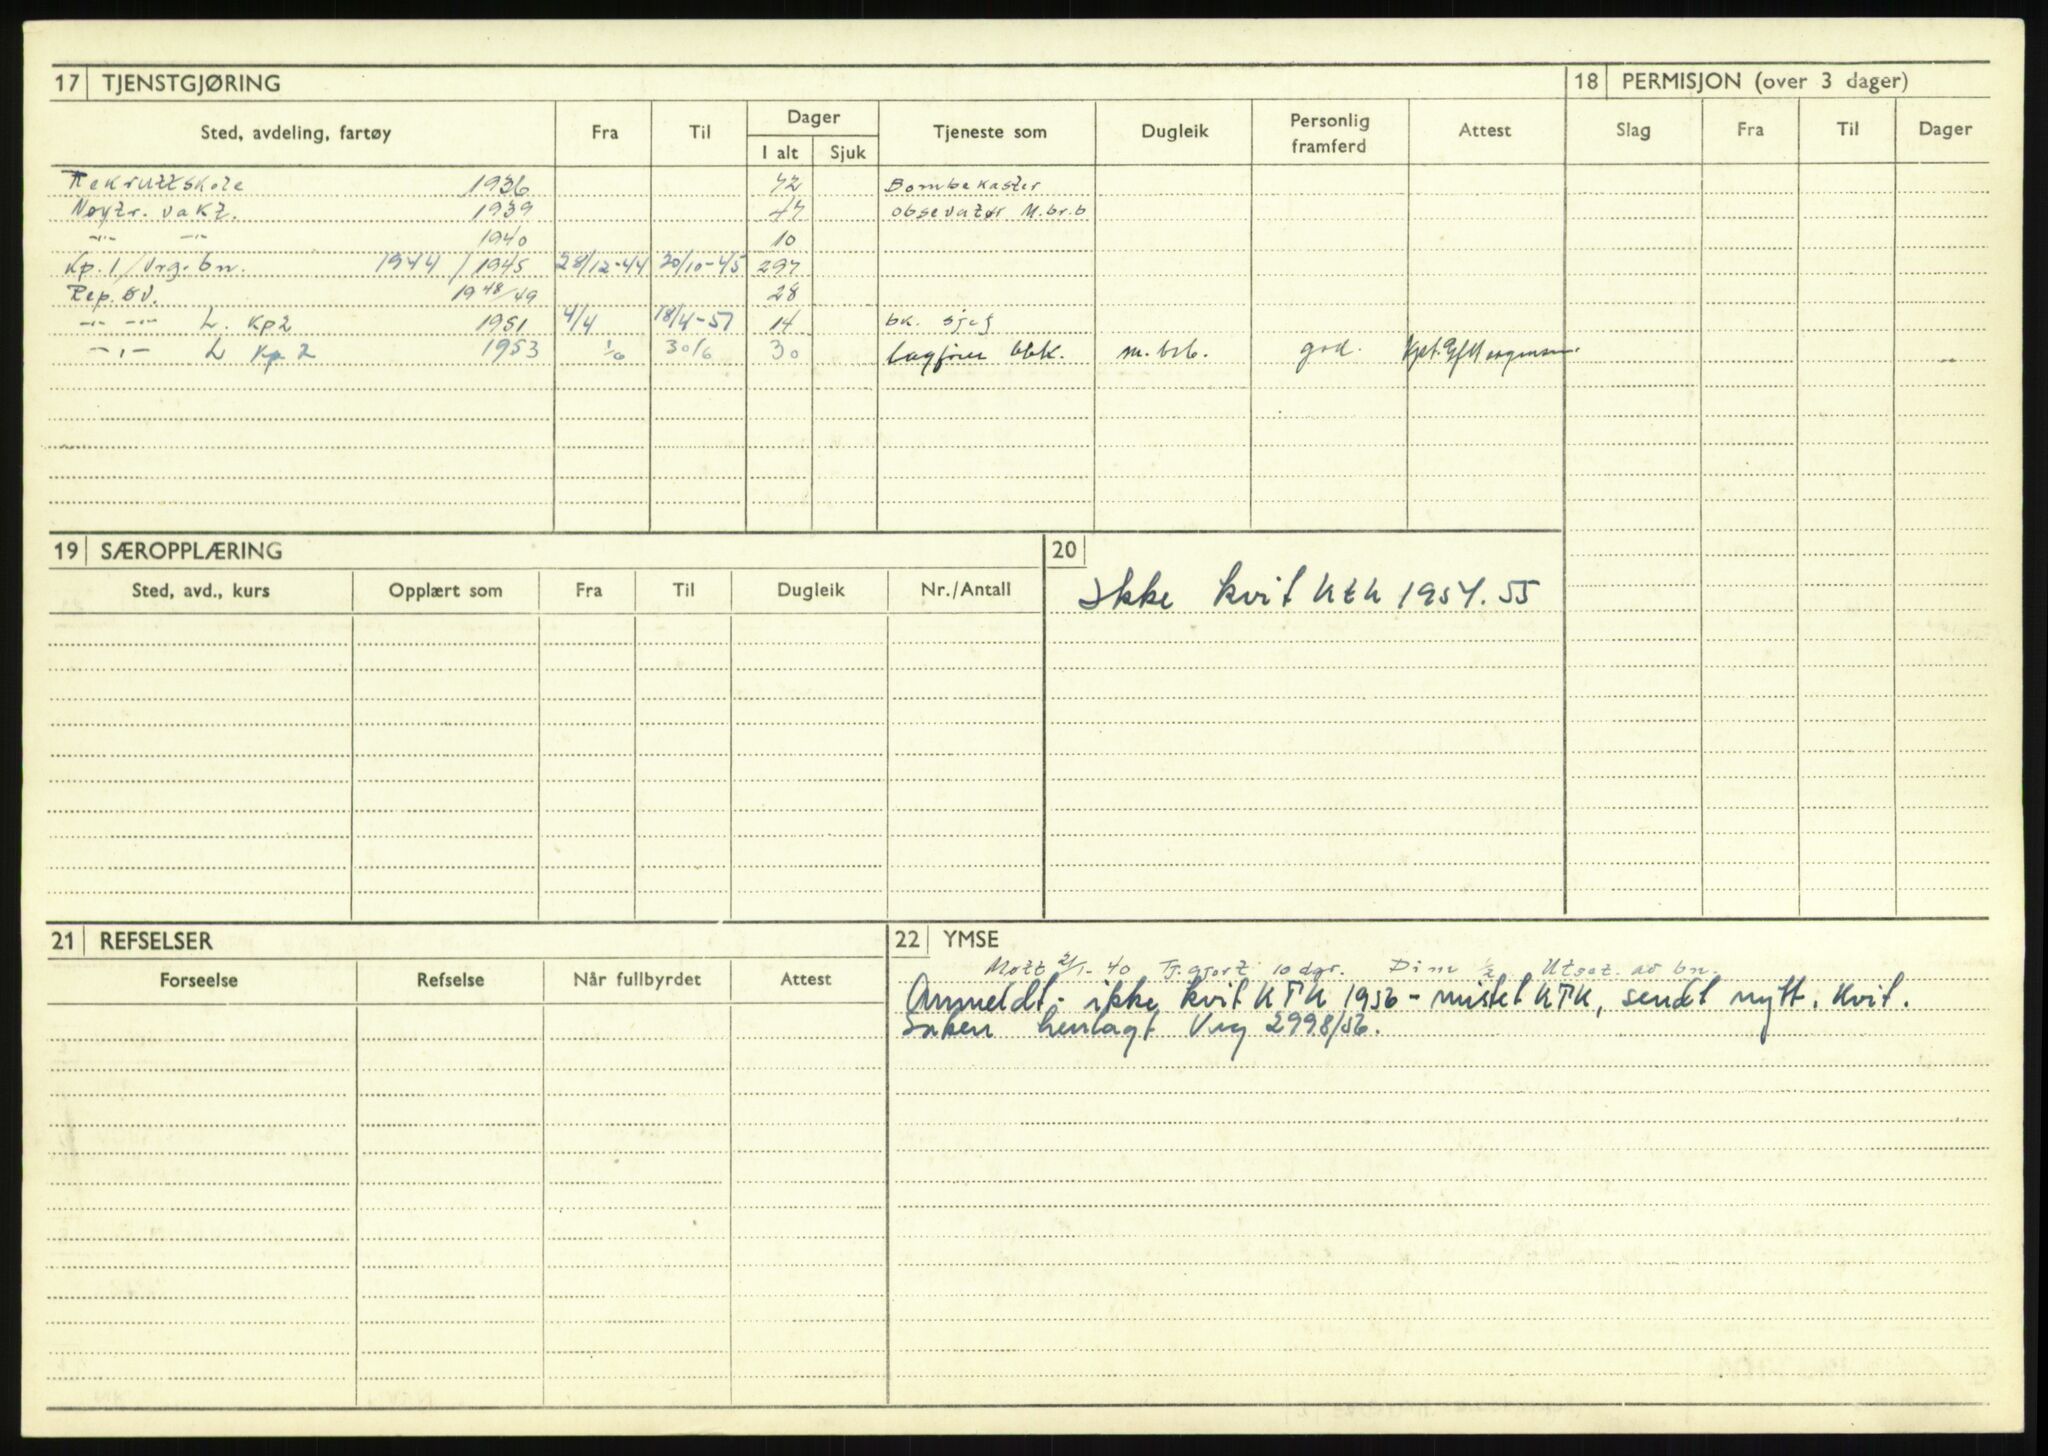 17 TJENSTGJØRING
18 PERMISJON (over 3 dager)
Sted, avdeling, fartøy Fra Til Dager I alt Sjuk Tjeneste som Dugleik Personlig framferd Attest Slag Fra Til Dager
Rekruttskole 1936 72 Bombekaster
Nøytr. vakt. 1939 47 obsevatør M.br.b
-"- -"- 1940 10
Kp. 1/Vrg. bn. 1944/1945 28/12-44 20/10-45 297
Rep. øv. 1948/49 28
-"- -"- L. Kp2 1951 4/4 18/4-51 14 bk. sjef
-"- L Kp 2 1953 1/6 30/6 30 lagfører bbk. m. brb. god. Kpt.
19 SÆROPPLÆRING
20
Sted, avd., kurs Opplært som Fra Til Dugleik Nr./Antall
Ikke kvit KtK 1954. 55
21 REFSELSER
22 YMSE
Forseelse Refselse Når fullbyrdet Attest
Møtt 2/1-40 Tj.gjort 10 dgr. Dim 1/2 Utsat. av bn.
Anmeldt - ikke kvit KTK 1956 - mistet KTK, sendt nytt. Kvit.
Saken henlagt Vrg 2998/56.